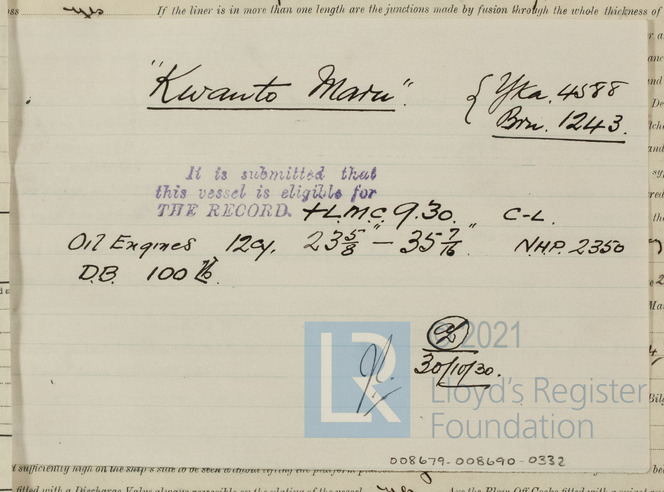 yes If the liner is in more than one length are the junctions made by fusion through the whole thickness of
"Kwanto Maru".
{ Yka. 4588
Brn. 1243.
It is submitted that
this vessel is eligible for
THE RECORD. + L.M.C. 9.30. C-L.
Oil Engines 12cy. 23 5/8" - 35 7/16" N.H.P. 2350
D.B. 100 lb.
30/10/30.
© 2021
LR
Lloyd's Register
Foundation
008679-008690-0332